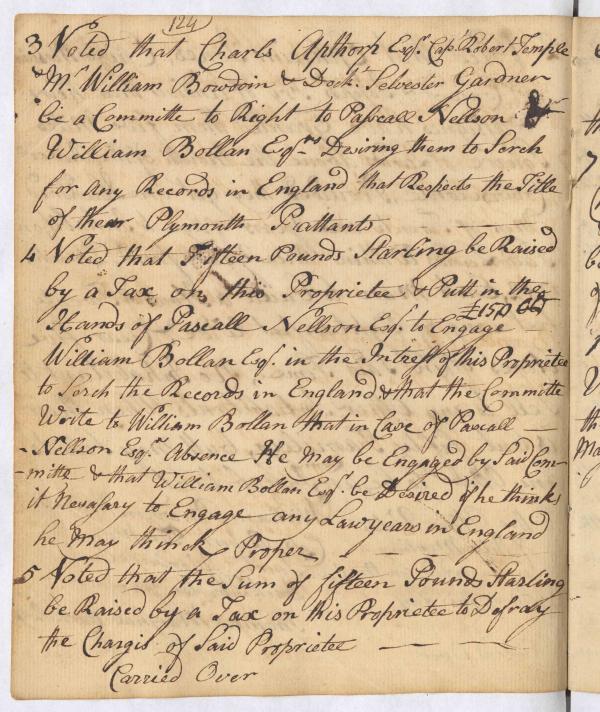 124
3 Voted that Charls Apthorp Esqr. Capt. Robert Temple
& Mr. William Bowdoin & Dockr. Selvester Gardner
be a Committe to Right to Pascall Nellson &
William Bollan Esqrs. Desiring them to Serch
for any Records in England that Respects the Title
of their Plymouth Pattants
4 Voted that Fifteen Pounds Starling be Raised
by a Tax on this Proprietee & Putt in the
£150 OT
Hands of Pascall Nellson Esqr. to Engage
William Bollan Esqr. in the Intrest of this Proprietee
to Serch the Records in England & that the Committe
Write to William Bollan that in Case of Pascall
Nellson Esqr. Absence He may be Engaged by Said Com-
-mitte & that William Bollan Esqr. be Desired if he thinks
it Nesasary to Engage any Lawyears in England
he May think Proper
5 Voted that the Sum of fifteen Pounds Starling
be Raised by a Tax on this Proprietee to Defray
the Chargis of Said Proprietee
Carried Over